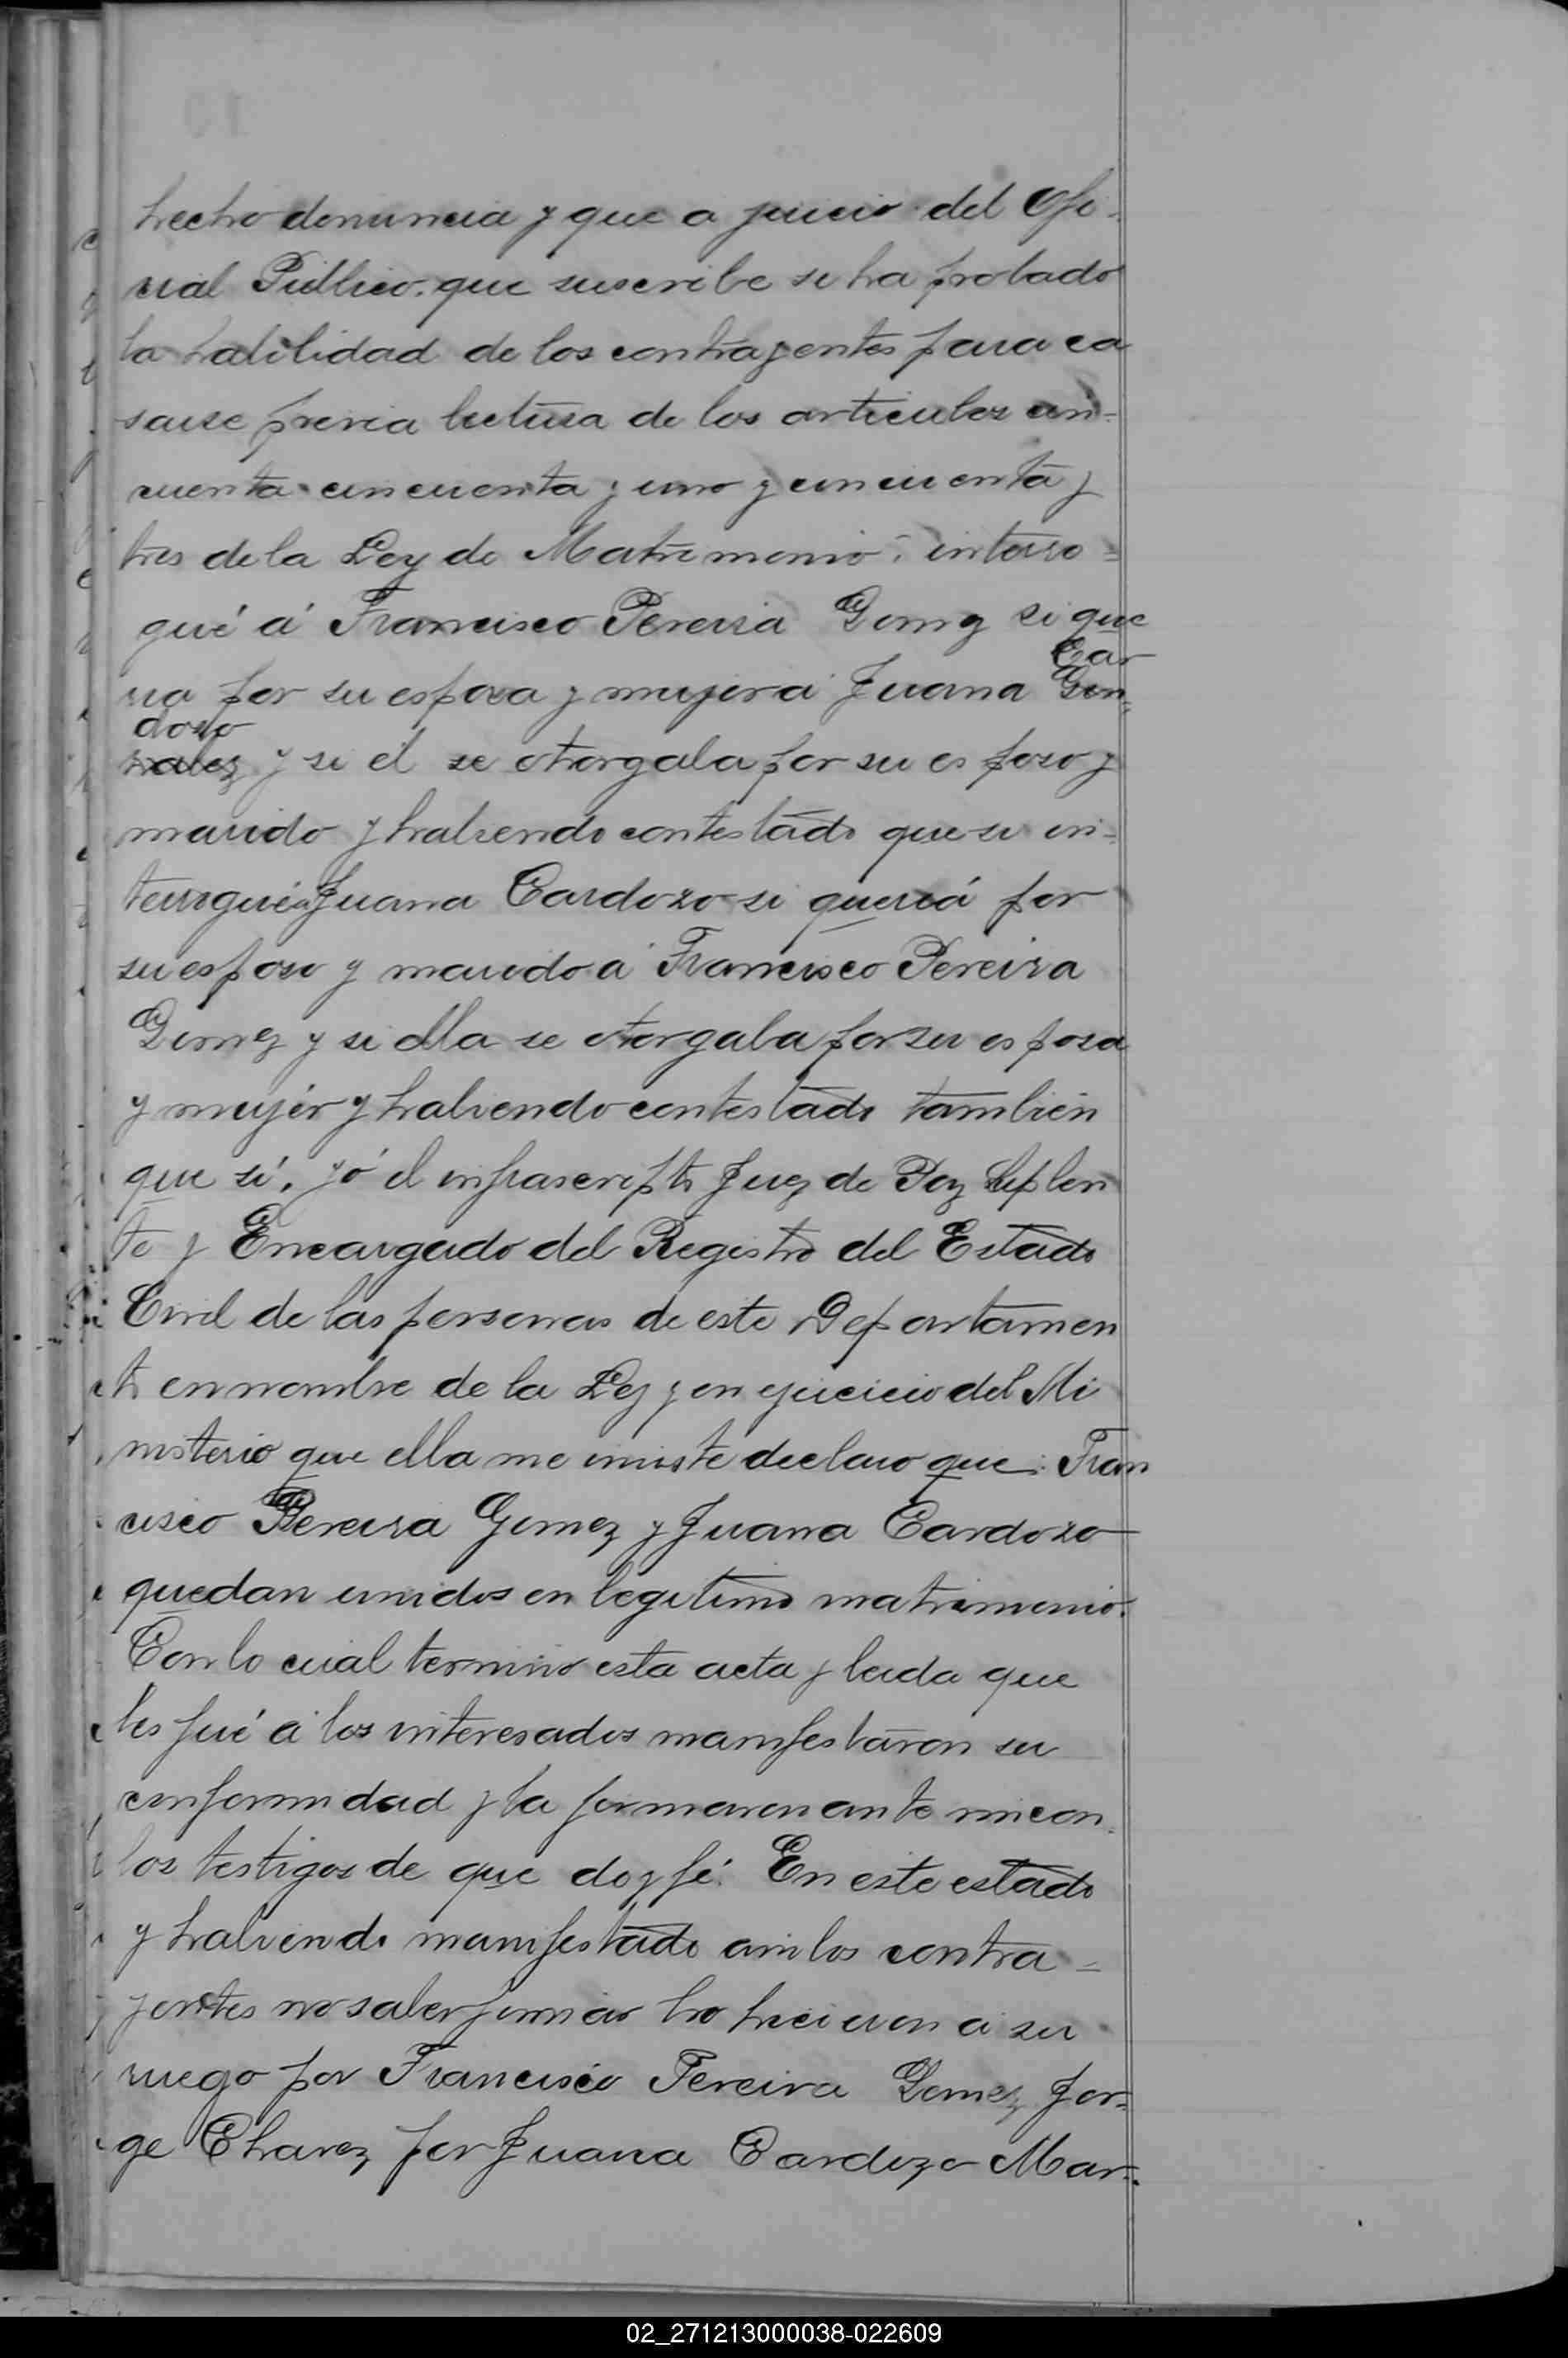 hecho denuncia y que a juicio del Ofi-
cial Público que suscribe se ha probado
la habilidad de los contrayentes para ca
sarse previa lectura de los articulos cin-
cuenta cincuenta y uno y cincuenta y
tres de la Ley de Matrimonio: interro=
gué á Francisco Pereira Gomez si que
Car
ria por su esposa y mujer á Juana Gon-
dozo
zalez y si él se otorgaba por su esposo y
marido y habiendo contestado que si in-
terrogué á Juana Cardozo si queriá por
su esposo y marido á Francisco Pereira
Gomez y si ella se otorgaba por su esposa
y mujer y habiendo contestado tambien
que sí, yó el infrascripto Juez de Paz Suplen
te y Encargado del Registro del Estado
Civil de las personas de este Departamen
to en nombre de la Ley y en ejercicio del Mi
nisterio que ella me inviste declaro que: Fran
cisco Pereira Gomez y Juana Cardozo
quedan unidos en legitimo matrimonio.
Con lo cual termino esta acta y leida que
les fué á los interesados manifestaron su
conformidad y la firmaron ante mi con
los testigos de que doy fé. En este estado
y habiendo manifestado ambos contra=
yentes no saber firmar lo hicieron á su
ruego por Francisco Pereira Gomez Jor-
ge Chavez por Juana Cardozo Mar-
02_271213000038-022609